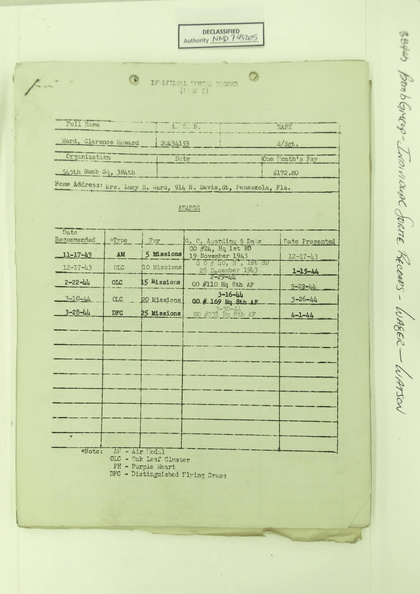 DECLASSIFIED
Authority NND 745005
INDIVIDUAL SORTIE RECORD
Full Name A. S. N. RANK
Ward, Clarence Howard 20434153 S/Sgt.
Organization Duty One Month's Pay
545th Bomb Sq, 384th $172.80
Home Address: Mrs. Lucy B. Ward, 914 N. Davis, St, Pensacola, Fla.
AWARDS
Date Recommended *Type For G. O. Awarding & Date Date Presented
11-17-43 AM 5 Missions GO #24, Hq 1st BD 19 November 1943 12-17-43
12-17-43 OLC 10 Missions 1st BD 28 December 1943 1-15-44
2-22-44 OLC 15 Missions GO #110 Hq 8th AF 3-22-44
3-10-44 OLC 20 Missions 3-16-44 GO # 169 Hq 8th AF 3-26-44
3-28-44 DFC 25 Missions 8th AF 4-1-44
*Note: AM - Air Medal
OLC - Oak Leaf Cluster
PH - Purple Heart
DFC - Distinguished Flying Cross
Bomb Group - Individual Sortie Records - Wager - Watson